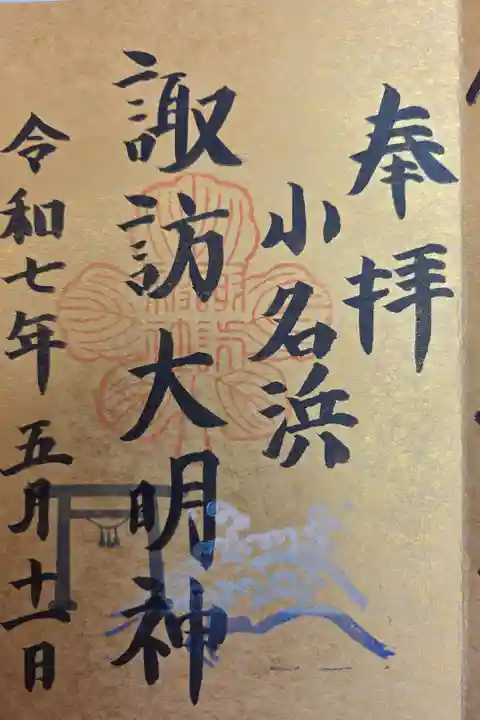 奉拝
小名浜
諏訪大明神
令和七年五月十一日